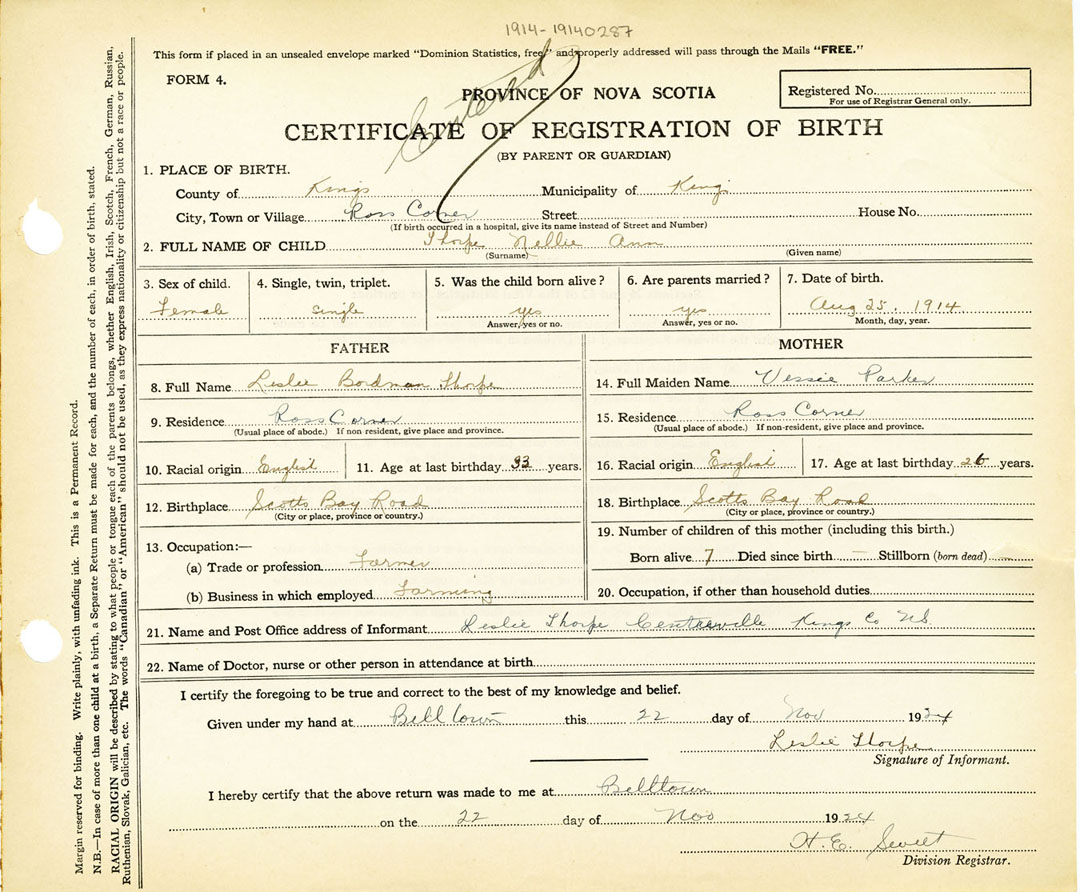 1914-19140287
This form if placed in an unsealed envelope marked "Dominion Statistics, free," and properly addressed will pass through the Mails "FREE."
FORM 4.
Entered
PROVINCE OF NOVA SCOTIA
Registered No.
For use of Registrar General only.
CERTIFICATE OF REGISTRATION OF BIRTH
(BY PARENT OR GUARDIAN)
1. PLACE OF BIRTH.
County of Kings Municipality of Kings
City, Town or Village Ross Corner Street House No.
(If birth occurred in a hospital, give its name instead of Street and Number)
2. FULL NAME OF CHILD Thorpe Nellie Ann
(Surname) (Given name)
3. Sex of child. 4. Single, twin, triplet. 5. Was the child born alive? 6. Are parents married? 7. Date of birth.
Female single yes yes Aug 25, 1914
Answer, yes or no. Answer, yes or no. Month, day, year.
FATHER
8. Full Name Leslie Bordman Thorpe
9. Residence Ross Corner
(Usual place of abode.) If non resident, give place and province.
10. Racial origin English 11. Age at last birthday 33 years.
12. Birthplace Scotts Bay Road
(City or place, province or country.)
13. Occupation:—
(a) Trade or profession Farmer
(b) Business in which employed Farming
MOTHER
14. Full Maiden Name Vessie Parker
15. Residence Ross Corner
(Usual place of abode.) If non-resident, give place and province.
16. Racial origin English 17. Age at last birthday 26 years.
18. Birthplace Scotts Bay Road
(City or place, province or country.)
19. Number of children of this mother (including this birth.)
Born alive 7 Died since birth — Stillborn (born dead) —
20. Occupation, if other than household duties
21. Name and Post Office address of Informant Leslie Thorpe Centreville Kings Co NS.
22. Name of Doctor, nurse or other person in attendance at birth
I certify the foregoing to be true and correct to the best of my knowledge and belief.
Given under my hand at Belltown this 22 day of Nov 1924
Leslie Thorpe
Signature of Informant.
I hereby certify that the above return was made to me at Belltown
on the 22 day of Nov 1924
H. E. Sweet
Division Registrar.
Margin reserved for binding. Write plainly, with unfading ink. This is a Permanent Record.
N.B.—In case of more than one child at a birth, a Separate Return must be made for each, and the number of each, in order of birth, stated.
RACIAL ORIGIN will be described by stating to what people or tongue each of the parents belongs, whether English, Irish, Scotch, French, German, Russian,
Ruthenian, Slovak, Galician, etc. The words "Canadian" or "American" should not be used, as they express nationality or citizenship but not a race or people.